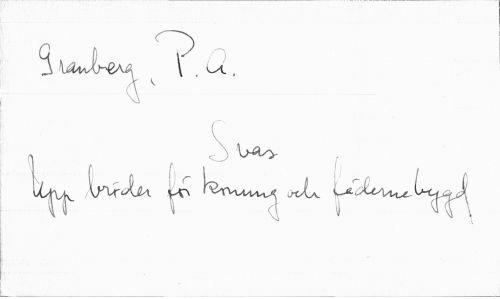 Granberg, P. A.
Svar
Upp bröder för konung och fädernebygd